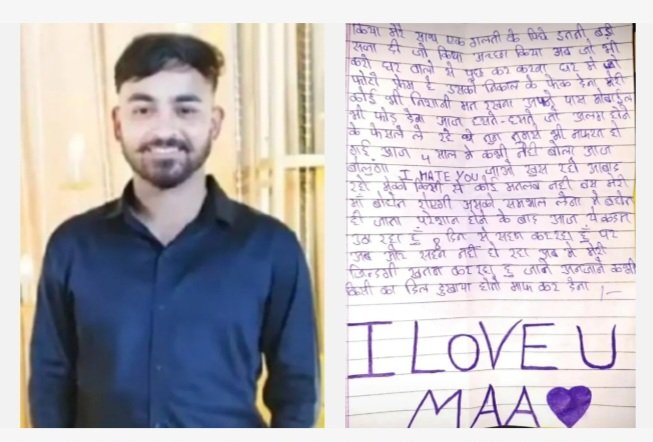 किया मेरे साथ एक गलती के लिये इतनी बड़ी
सजा दी जो किया अच्छा किया अब जो भी
करो घर वालो से पुछ कर करना घर में
फोटो फ्रेम है उसको निकाल के फेक देना मेरी
कोई भी निशानी मत रखना अपने पास मोबाईल
भी फोड़ देना आज हसते-हसते जो अलग होने
के फैसले ले रहे थे तुम तुमसे भी नफरत हो
गई आज 4 साल में कभी नही बोला आज
बोलूगा I HATE YOU जाओ खुस रहो आबाद
रहो मुझे किसी से कोई मतलब नही बस मेरी
माँ बहोत रोएगी उसको समभाल लेना मे बहोत
ही जादा परेशान होने के बाद आज ये कदम
उठा रहा हूँ 8 दिन से सहन कर रहा हूँ पर
अब और सहन नहीं हो रहा अब मे मेरी
जिन्दगी खतम कर रहा हु जाने अनजाने कभी
किसी का दिल दुखाया होतो माफ कर देना
I LOVE U
MAA